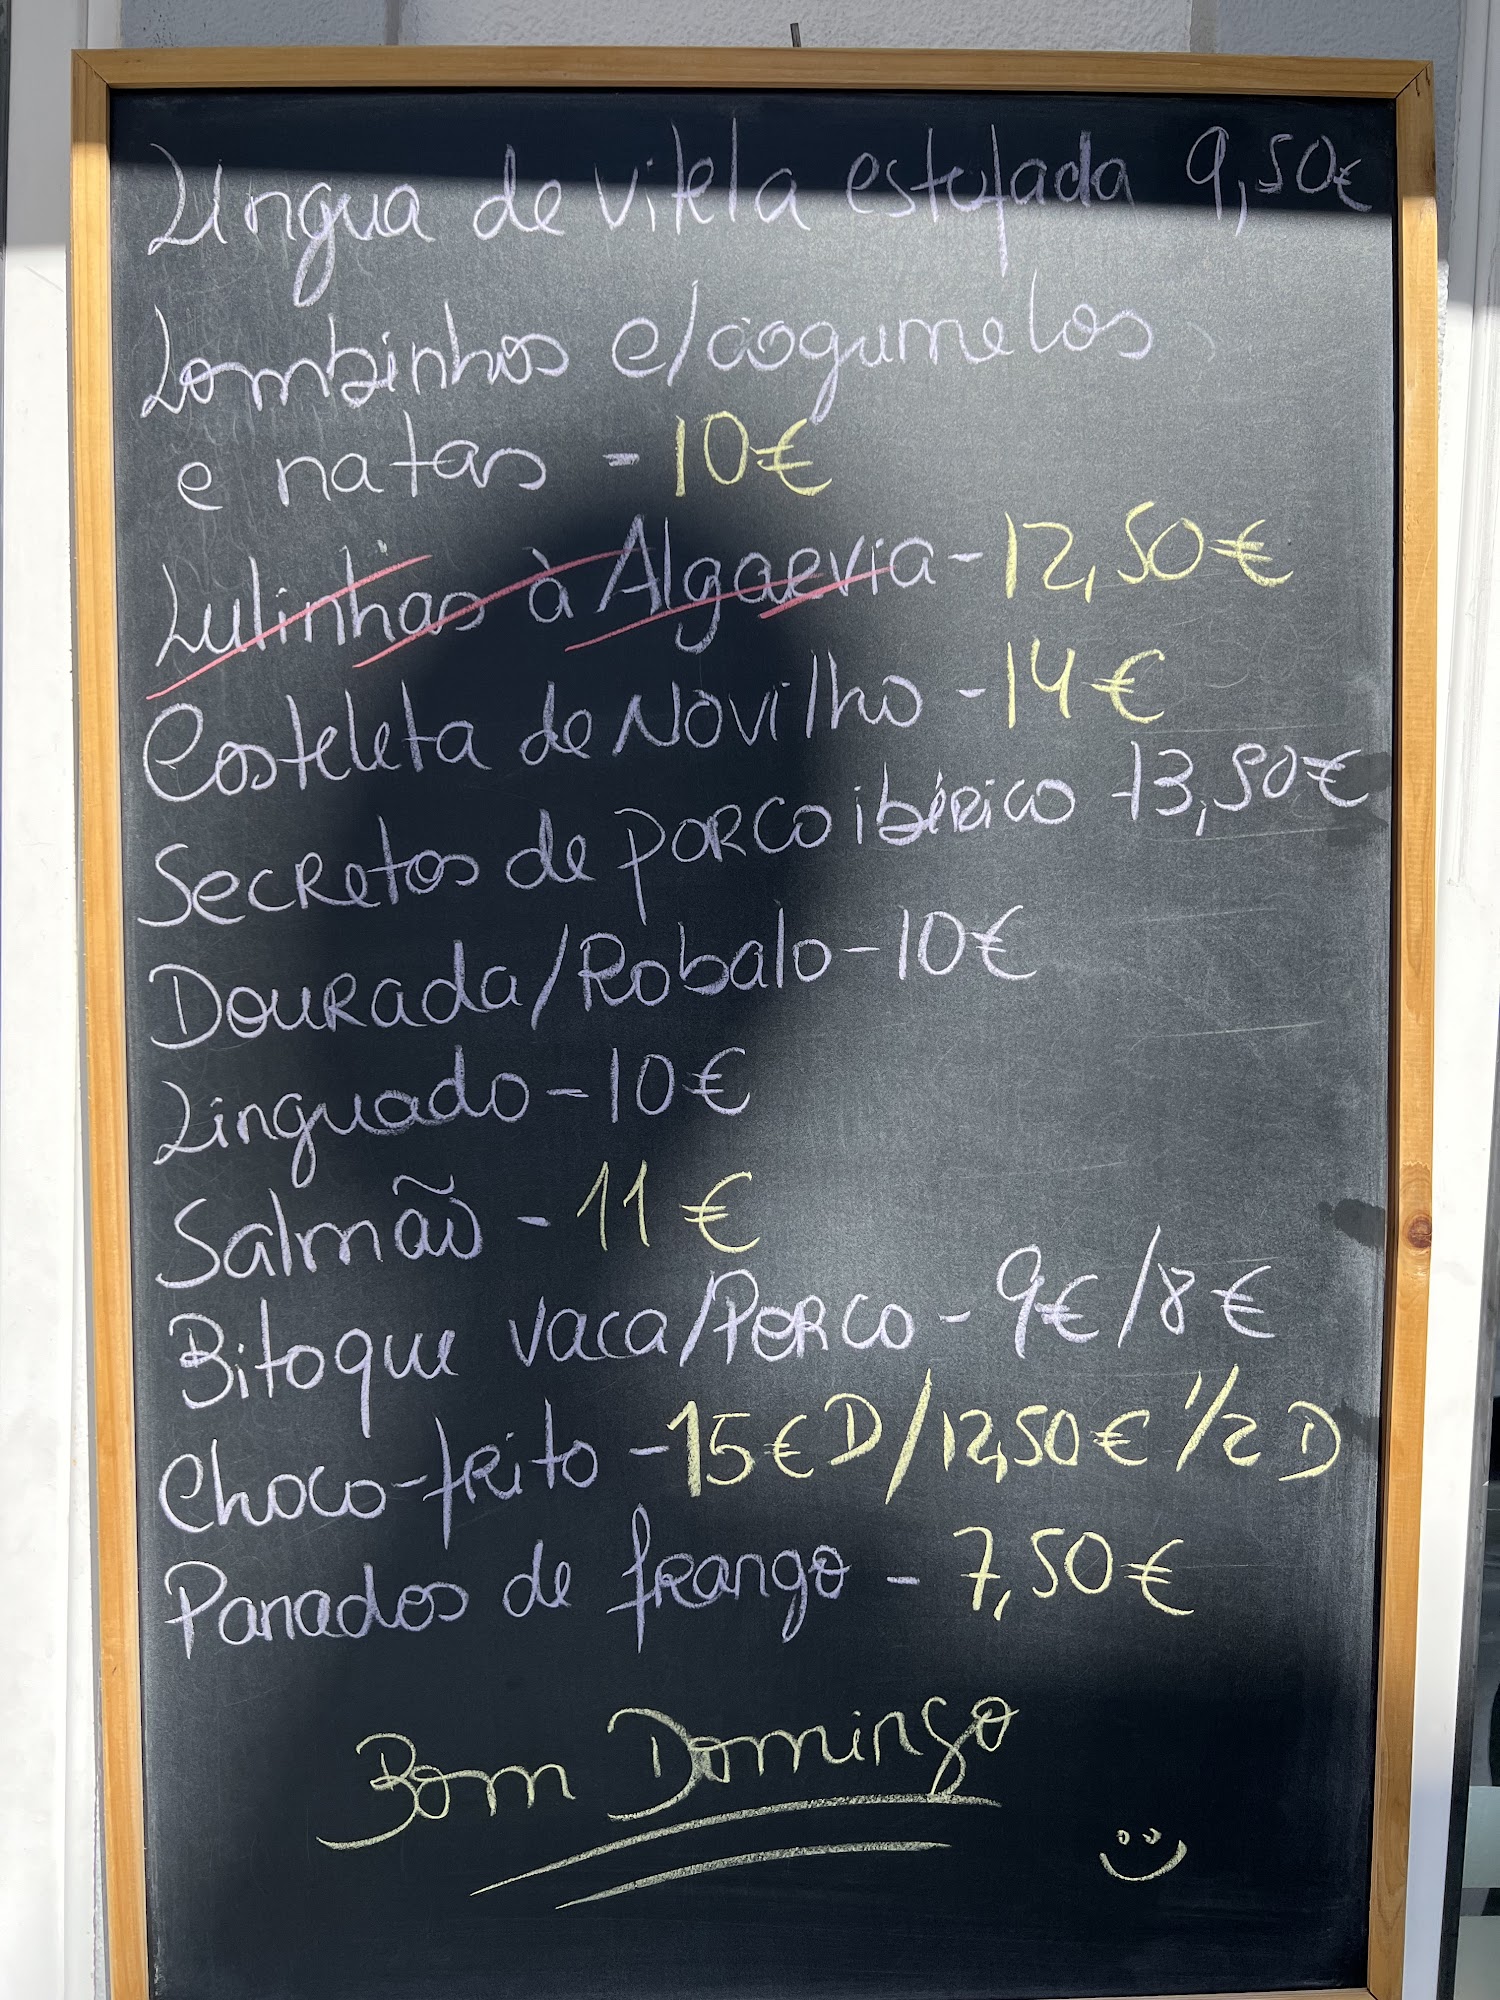 Lingua de vitela estufada 9,50€
Lombinhos c/cogumelos
e natas - 10€
Lulinhas à Algaevia - 12,50€
Costeleta de Novilho - 14€
Secretos de porco ibérico - 13,50€
Dourada/Robalo - 10€
Linguado - 10€
Salmão - 11€
Bitoque vaca/Porco - 9€/8€
Choco-frito - 15€ D/12,50€ 1/2 D
Panados de frango - 7,50€
Bom Domingo